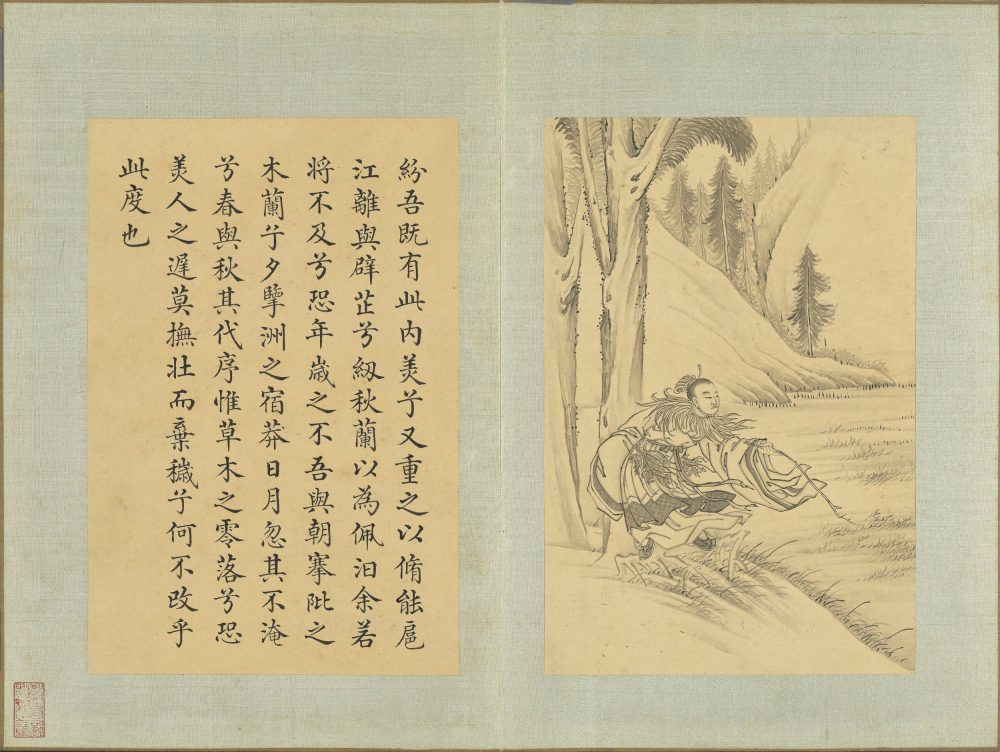 紛吾既有此内羙兮又重之以脩能扈
江離與辟芷兮紉秋蘭以為佩汩余若
将不及兮恐年歳之不吾與朝搴阰之
木蘭兮夕擥洲之宿莽日月忽其不淹
兮春與秋其代序惟草木之零落兮恐
羙人之遅莫撫壯而棄穢兮何不改乎
此度也